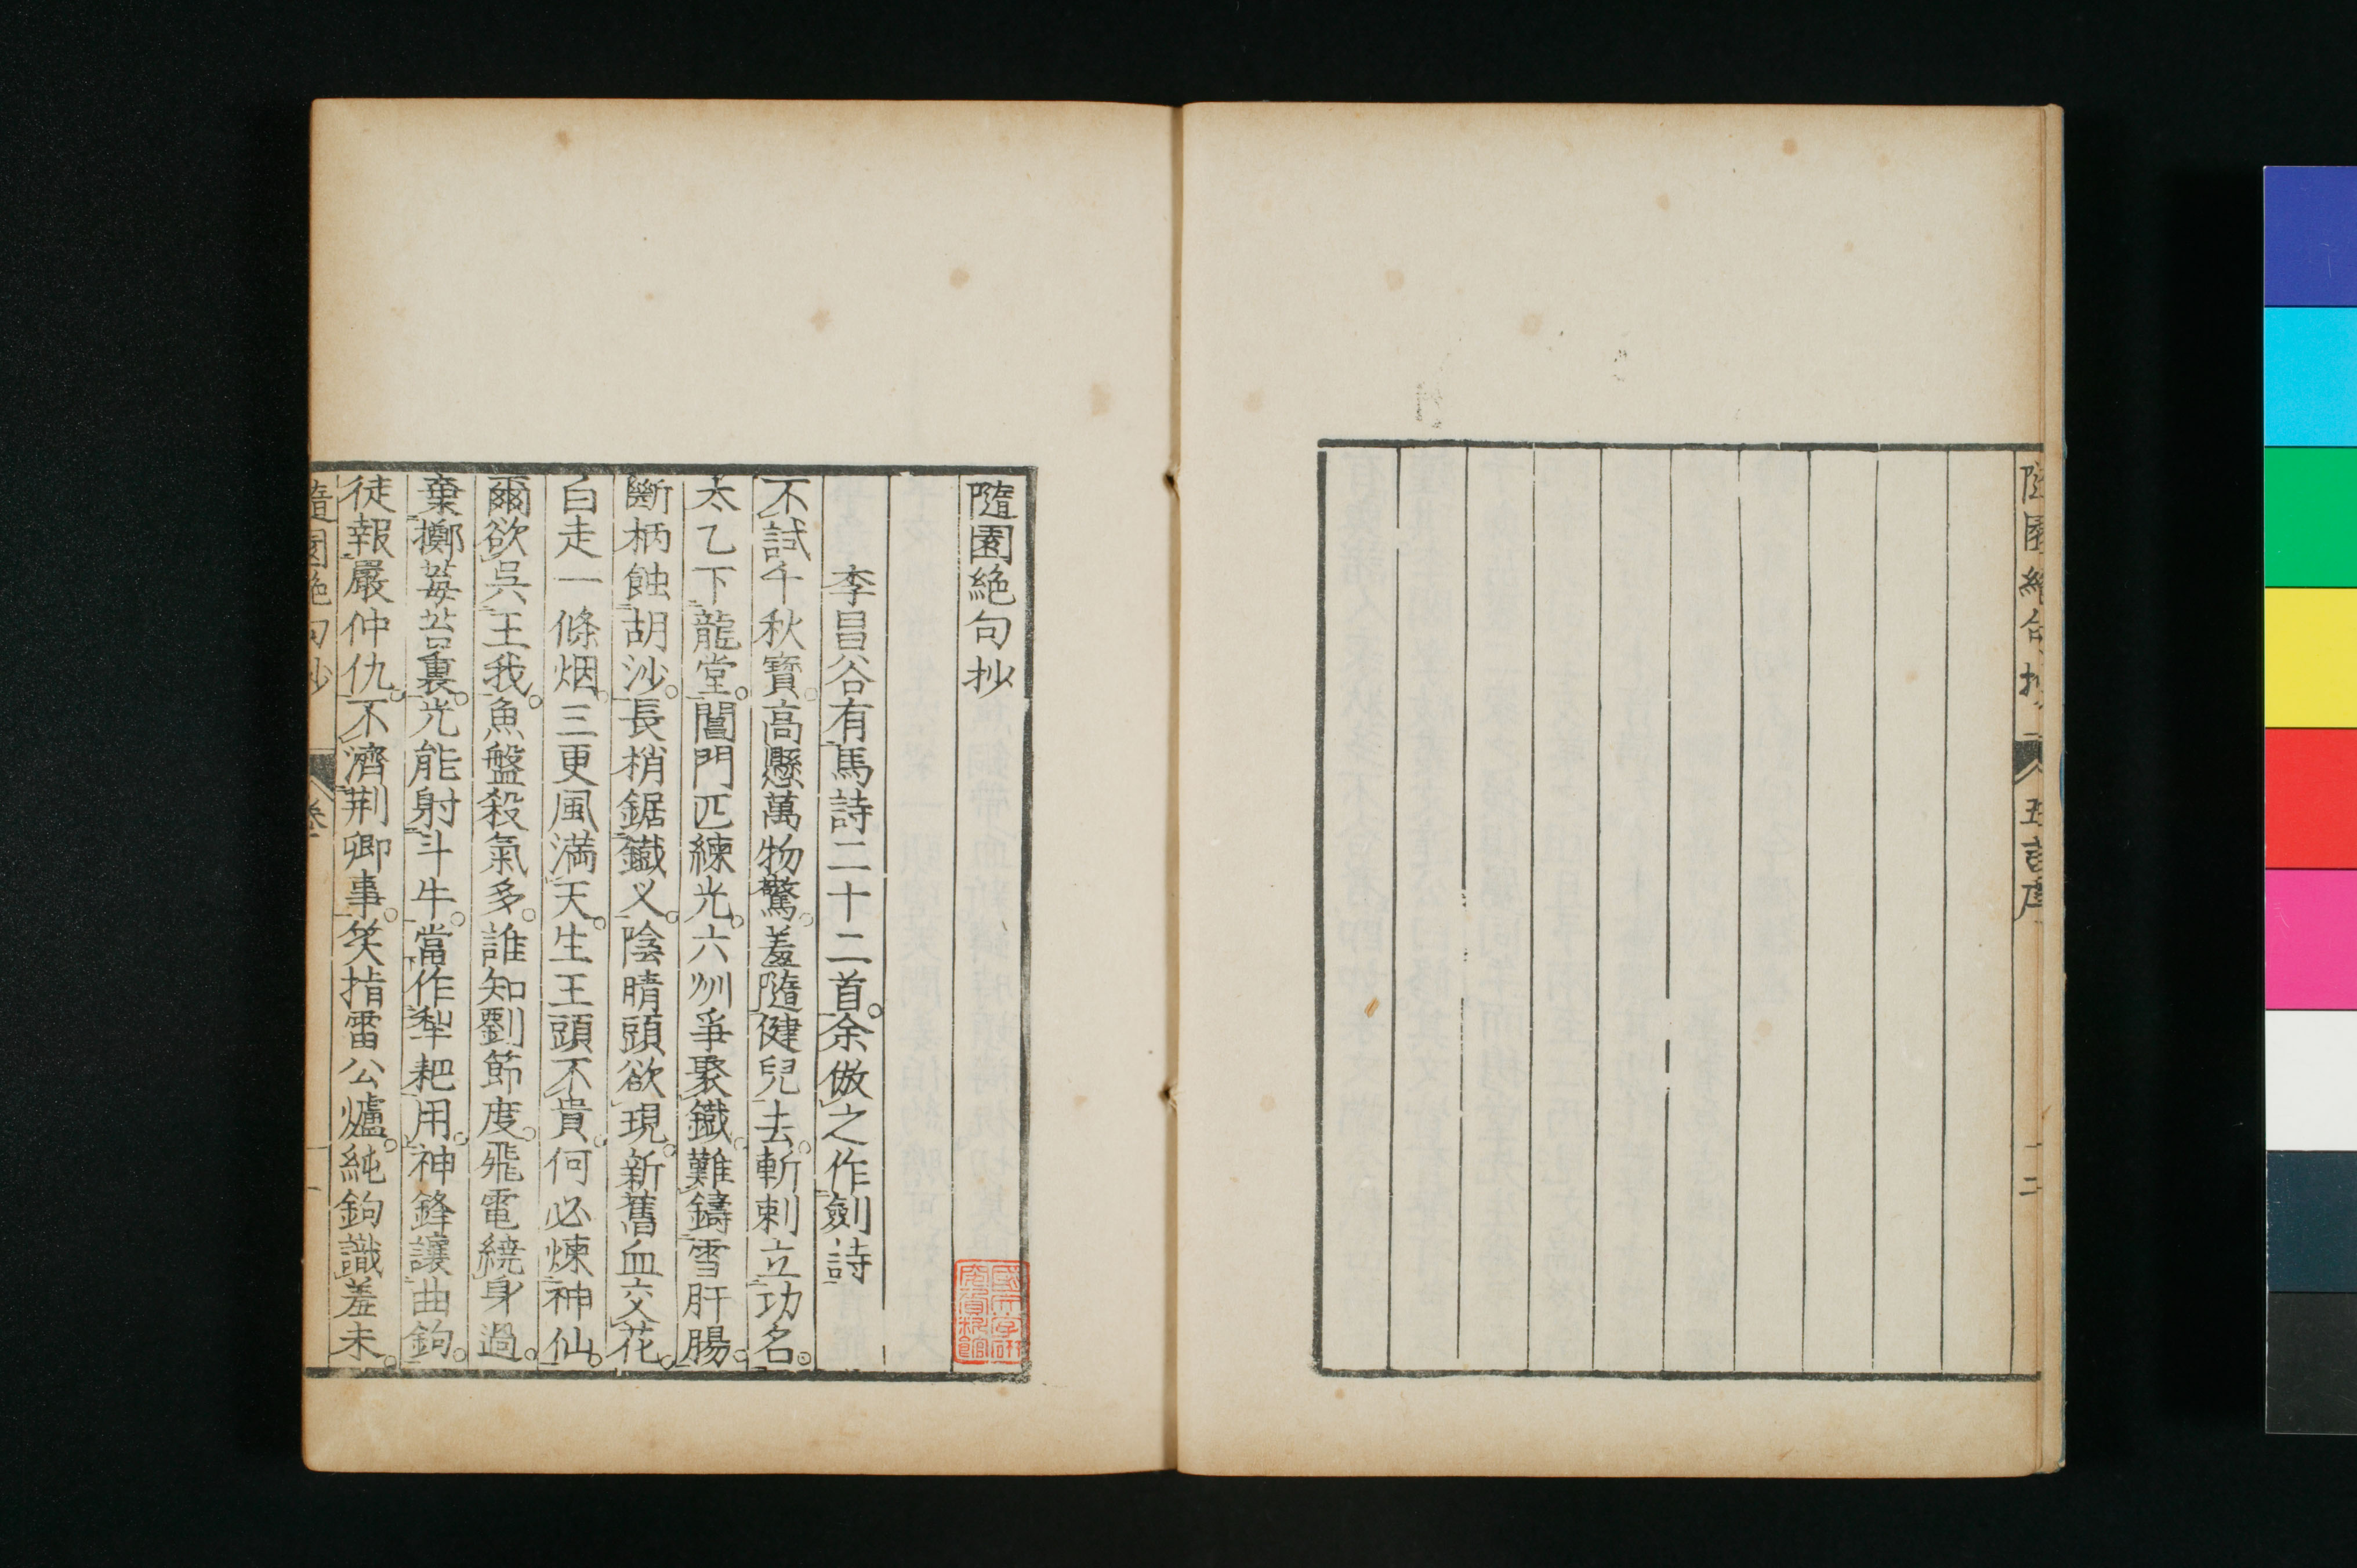 隨園絶句抄
五言序
二
隨園絶句抄
李昌谷有馬詩二十二首。余倣之作劍詩
不試千秋寶。高懸萬物驚。羞隨健兒去。斬刺立功名。
太乙下龍堂。閶門匹練光。六州爭聚鐵。難鑄雪肝腸。
斷柄蝕胡沙。長梢鋸鐵义。陰晴頭欲現。新舊血交花。
白走一條烟。三更風満天。生王頭不貴。何必煉神仙。
爾欲呉王我。魚盤殺氣多。誰知劉節度。飛電繞身過。
棄擲莓苔裏。光能射斗牛。當作犂耙用。神鋒讓曲鉤。
徒報嚴仲仇。不濟荆卿事。笑指雷公爐。純鉤識羞未。
隨園絶句抄
卷
一
國文學研究資料館